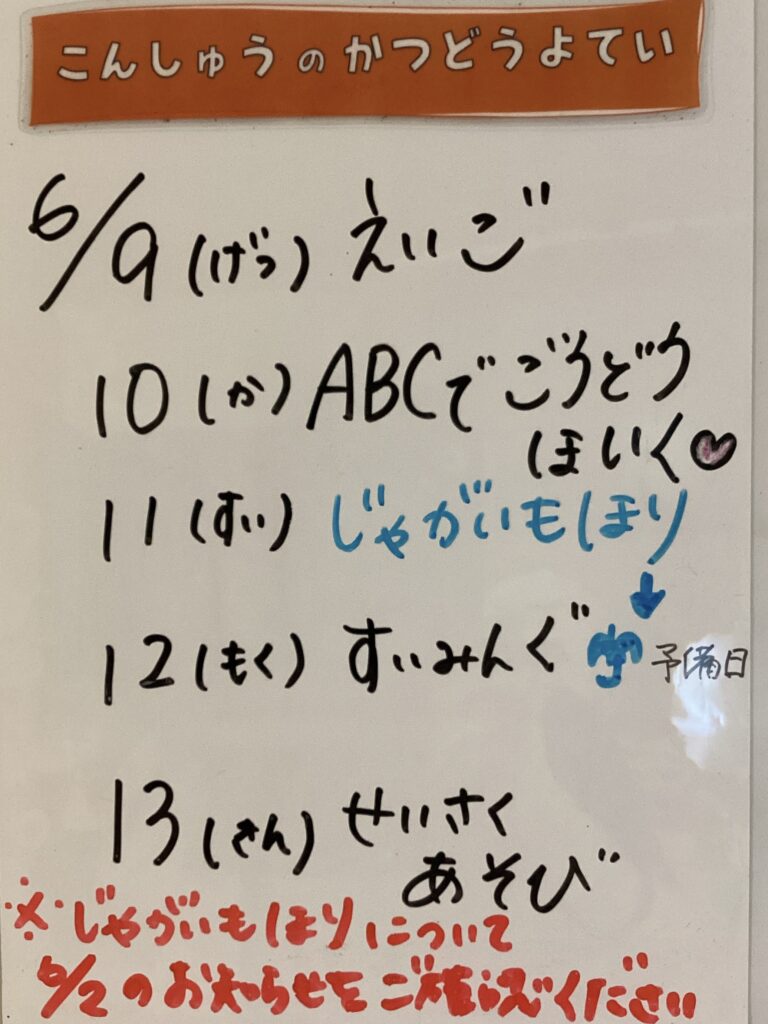 こんしゅうのかつどうよてい
6/9(げつ) えいご
10(か) ABCでごうどう
ほいく♡
11(すい) じゃがいもほり
↓
12(もく) すいみんぐ 予備日
13(きん) せいさく
あそび
※じゃがいもほりについて
6/2のお知らせをご確認ください